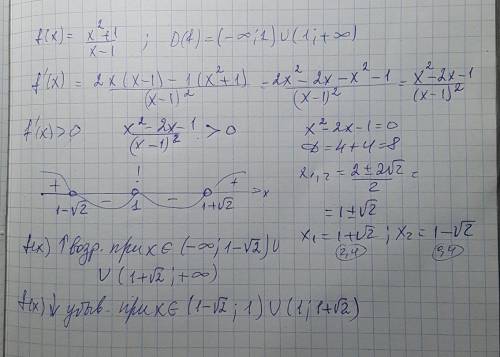 f(x) = x²+1 / x-1 ; D(f) = (-∞; 1) ∪ (1; +∞)
f'(x) = 2x(x-1) - 1(x²+1) / (x-1)² = 2x² - 2x - x² - 1 / (x-1)² = x² - 2x - 1 / (x-1)²
f'(x) > 0 x² - 2x - 1 / (x-1)² > 0 x² - 2x - 1 = 0
D = 4 + 4 = 8
x₁,₂ = 2 ± 2√2 / 2 =
= 1 ± √2
x₁ = 1 + √2 ; x₂ = 1 - √2
2,4
+ - - + x
1-√2 1 1+√2
f(x) ↑ возр. при x ∈ (-∞; 1-√2) ∪
∪ (1+√2; +∞)
f(x) ↓ убыв. при x ∈ (1-√2; 1) ∪ (1; 1+√2)